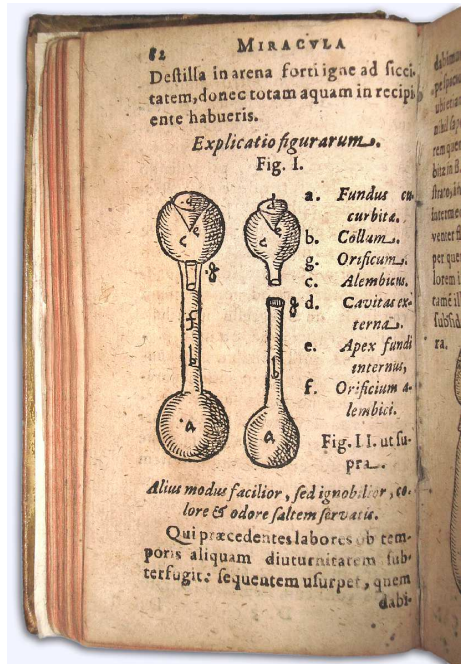 82 MIRACVLA
Deſtilla in arena forti igne ad ſicci-
tatem, donec totam aquam in recipi
ente habueris.
Explicatio figurarum.
Fig. I.
a. Fundus cu-
curbitæ.
b. Collum.
g. Orificum.
c. Alembicus.
d. Cavitas ex-
terna.
e. Apex fundi
internus,
f. Orificium a-
lembici.
Fig. II. ut ſu-
pra.
d
e
c
g
f
b
a
d
e
c
g
b
a
Alius modus facilior, ſed ignobilior, co-
lore & odore ſaltem ſervatis.
Qui præcedentes labores ob tem-
poris aliquam diuturnitatem ſub-
terfugit: ſequentem uſurpet, quem
dabi-